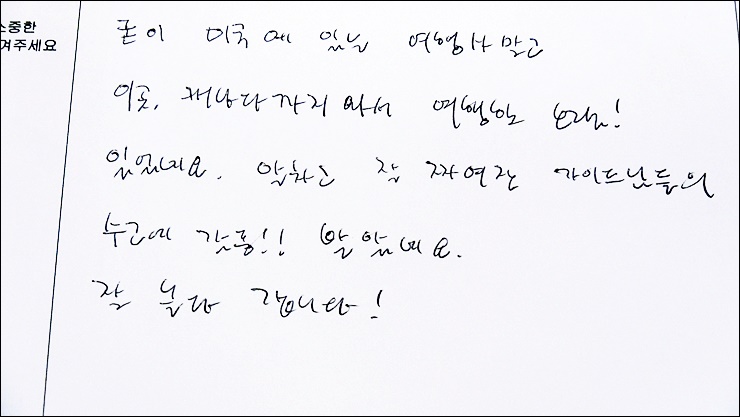 소중한
겨주세요
굳이 미국에 있는 여행사 말고
이곳, 캐나다까지 와서 여행한 보람!
있었네요. 알차고 잘 짜여진 가이드님들의
수고에 감동!! 받았네요.
잘 놀다 갑니다!